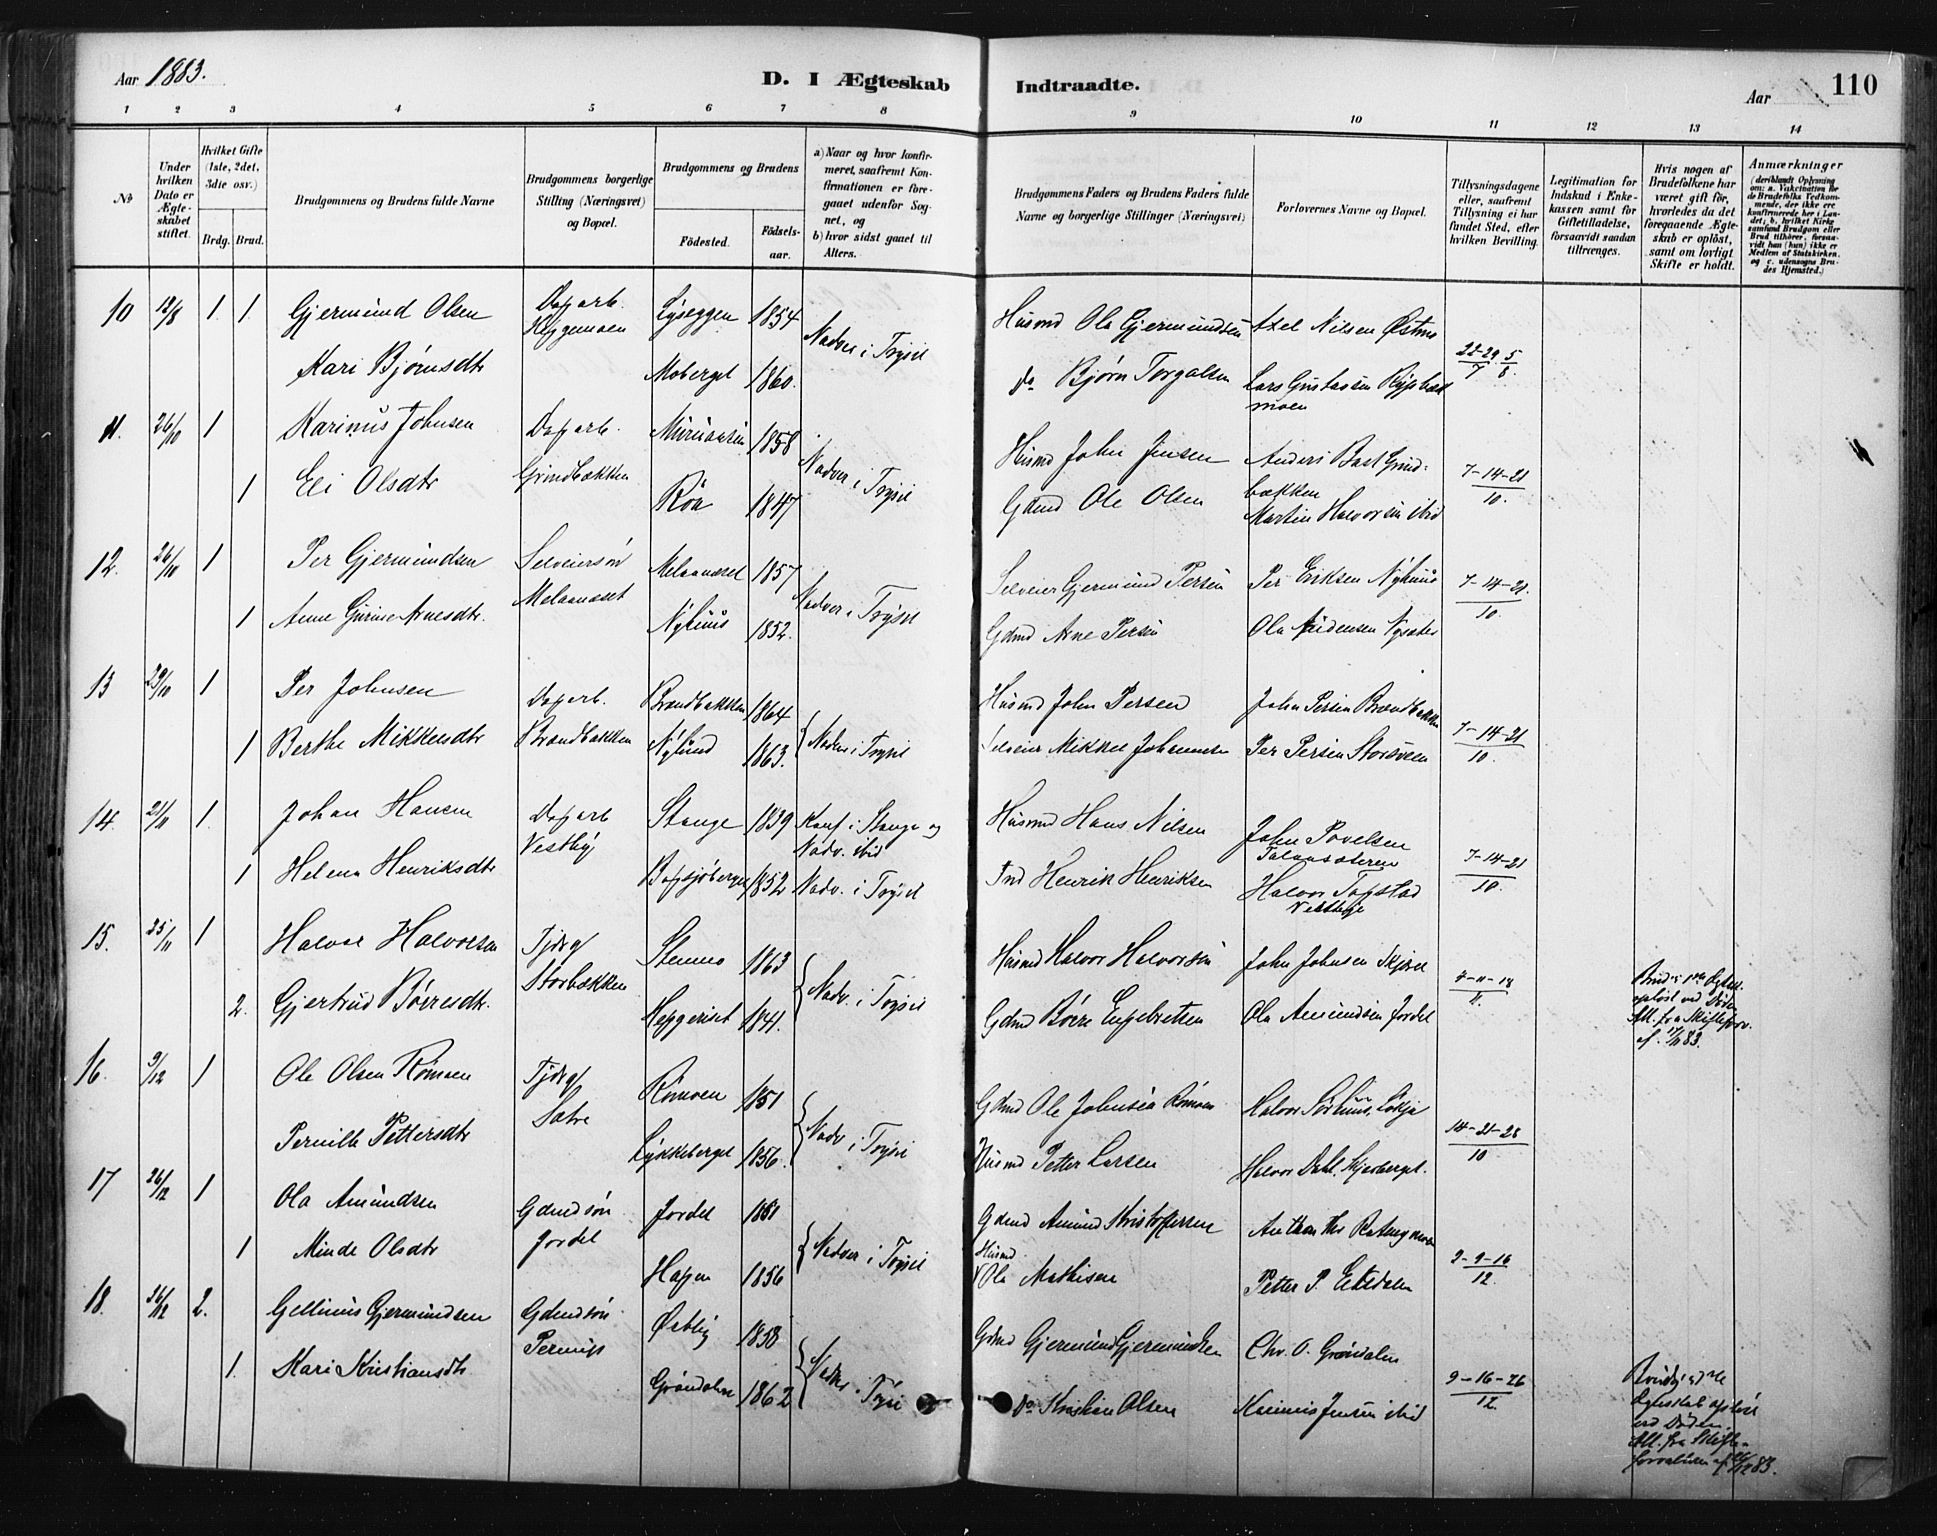 Aar 1883.
D. I Ægteskab Indtraadte.
Aar
110
1 2 3 4 5 6 7 8 9 10 11 12 13 14
No
Under hvilken Dato er Ægteskabet stiftet.
Hvilket Gifte (1ste, 2det, 3die osv.)
Brdg. Brud.
Brudgommens og Brudens fulde Navne
Brudgommens borgerlige Stilling (Næringsvei) og Bopæl.
Brudgommens og Brudens
Fødested.
Fødsels-aar.
a) Naar og hvor konfirmeret, saafremt Konfirmationen er foregaaet udenfor Sognet, og
b) hvor sidst gaaet til Alters.
Brudgommens Faders og Brudens Faders fulde Navne og borgerlige Stillinger (Næringsvei)
Forlovernes Navne og Bopæl.
Tillysningsdagene eller, saafremt Tillysning ei har fundet Sted, efter hvilken Bevilling.
Legitimation for Indskud i Enkekassen samt for Giftetilladelse, forsaavidt saadan tiltrænges.
Hvis nogen af Brudefolkene har været gift før, hvorledes da det foregaaende Ægteskab er opløst, samt om lovligt Skifte er holdt.
Anmærkninger
(deriblandt Oplysning om: a. Vakcination for de Brudefolks Vedkommende, der ikke ere konfirmerede her i Landet; b. hvilket Kirkesamfund Brudgom eller Brud tilhører, forsaavidt han (hun) ikke er Medlem af Statskirken, og c. udensogns Brudes Hjemsted.)
10 12/8 1. 1. Gjermund Olsen Dagarb. Lyseggen 1854 Nadver i Trysil Husmd Ola Gjermundsen Axel Nilsen 22-29/7 5/8
Kari Bjørnsdtr Moberget 1860. Do Bjørn Torgalsen Lars Gustavsen
moen
11. 26/10 1 Karinus Johnsen Dagarb. 1858 Nadver i Trysil Husmd John Jensen Anders Bast Grind-
1 Eli Olsdtr Grindbækken Röa 1847 Gdmd Ole Olsen bækken 7-14-21/10.
Martin Halvorsen ibid
12. 26/10 1 Per Gjermundsen Selveiersön Melaanæset 1857 Nadver i Trysil Selveier Gjermund Persen Per Eriksen Nyhuus 7-14-21/10.
1 Anne Gurine Arnesdtr. Melaanæset Nyhuus 1852. Gdmd Arne Persen Ola Nysæter
13 29/10 1 Per Johnsen Dagarb. Brændbækken 1864 Nadver i Trysil Husmd John Persen John Persen Brændbækken 7-14-21/10.
1 Berthe Mikkelsdtr Brændbækken Nylund 1863. Selveier Mikkel Johannesen Per Persen Storsveen
14. 21/11 1. Johan Hansen Dagarb Stange 1839 Konf. i Stange og Nadv. ibid Husmd Hans Nilsen John Povelsen
1 Helena Henriksdtr Vestby 1852 Nadv. i Trysil Ind Henrik Henriksen Halvor Vestbye 7-14-21/10.
15. 25/11 1 Halvor Halvorsen Tjdrg Stenmo 1863 Nadv. i Trysil Husmd Halvor Halvorsen John Johnsen 4-11-18/11.
2. Gjertrud Börresdtr. Storbækken 1841. Gdmd Börre Engebretsen Ola Amundsen Jordet
Opløst ved Döden Att. fra Skifteforv. af
16. 9/12 1 Ole Olsen Römoen Tjdrg Römoen 1851 Nadv i Trysil Gdmd Ole Johnsen Römoen Halvor Sörhuus, 14-21-28/10
Pernille Pettersdtr Sætre Lykkeberget 1856. Husmd Petter Larsen Halvor Dahl.
17 26/12 1 Ola Amundsen Gdmdsön Jordet 1851 Nadver i Trysil Gdmd Amund Kristoffersen
1 Minde Olsdtr Jordet Hagen 1856 Husmd Ola Mathisen Petter P. 2-9-16/12.
18. 26/12 2. Gellinus Gjermundsen Gdmdsön Östby 1858 Gdmd Gjermund Gjermundsen Chr. O. Gröndalen
1. Kari Kristiansdtr Gröndalen 1862 Nadv i Trysi Do Kristian Olsen Karinus Jensen ibid 9-16-26/12.
Ægteskab opløst ved Döden. Att. fra Skifte-forvalteren af 83.